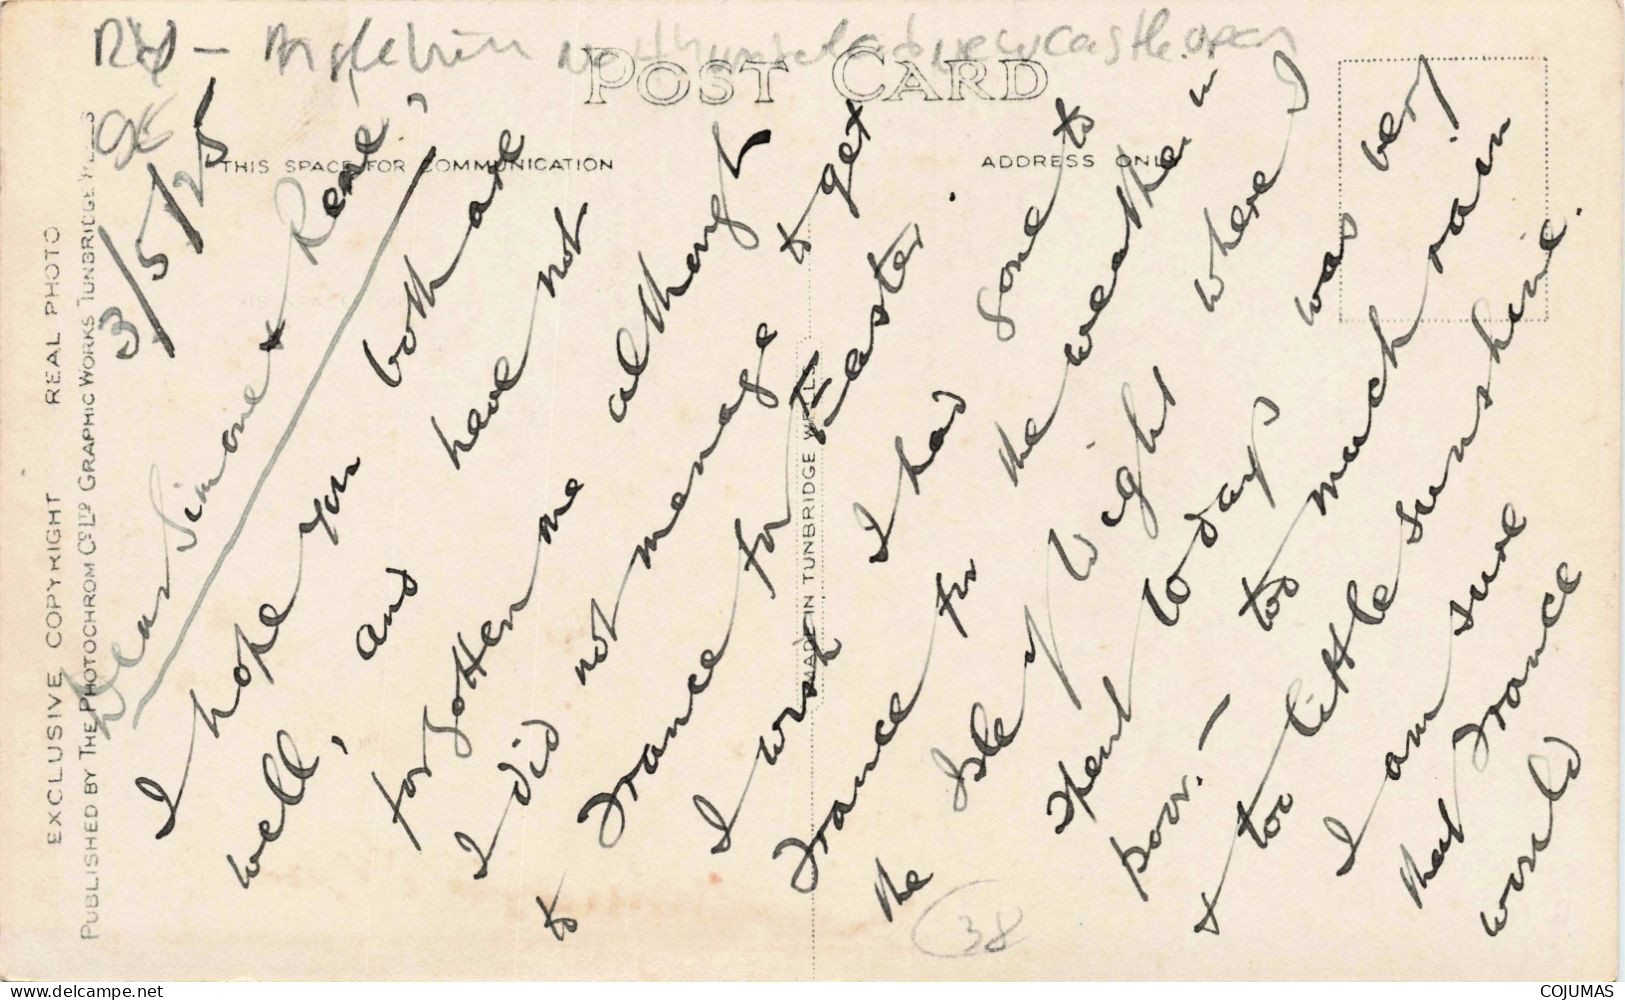 Angleterre Northumberland Newcastle open
POST CARD
THIS SPACE FOR COMMUNICATION
ADDRESS ONLY
EXCLUSIVE COPYRIGHT REAL PHOTO
PUBLISHED BY THE PHOTOCHROM CO. LTD GRAPHIC WORKS TUNBRIDGE WELLS
MADE IN TUNBRIDGE WELLS
3/5/25
Dear Simone & Rene,
I hope you both are
well, and have not
forgotten me although
I did not manage to get
to France for Easter.
I wish I had gone to
France for the weather in
the Isle of Wight where I
spent 10 days was very
poor. - too much rain
& too little sunshine.
I am sure
that France
would
38
COJUMAS
www.delcampe.net